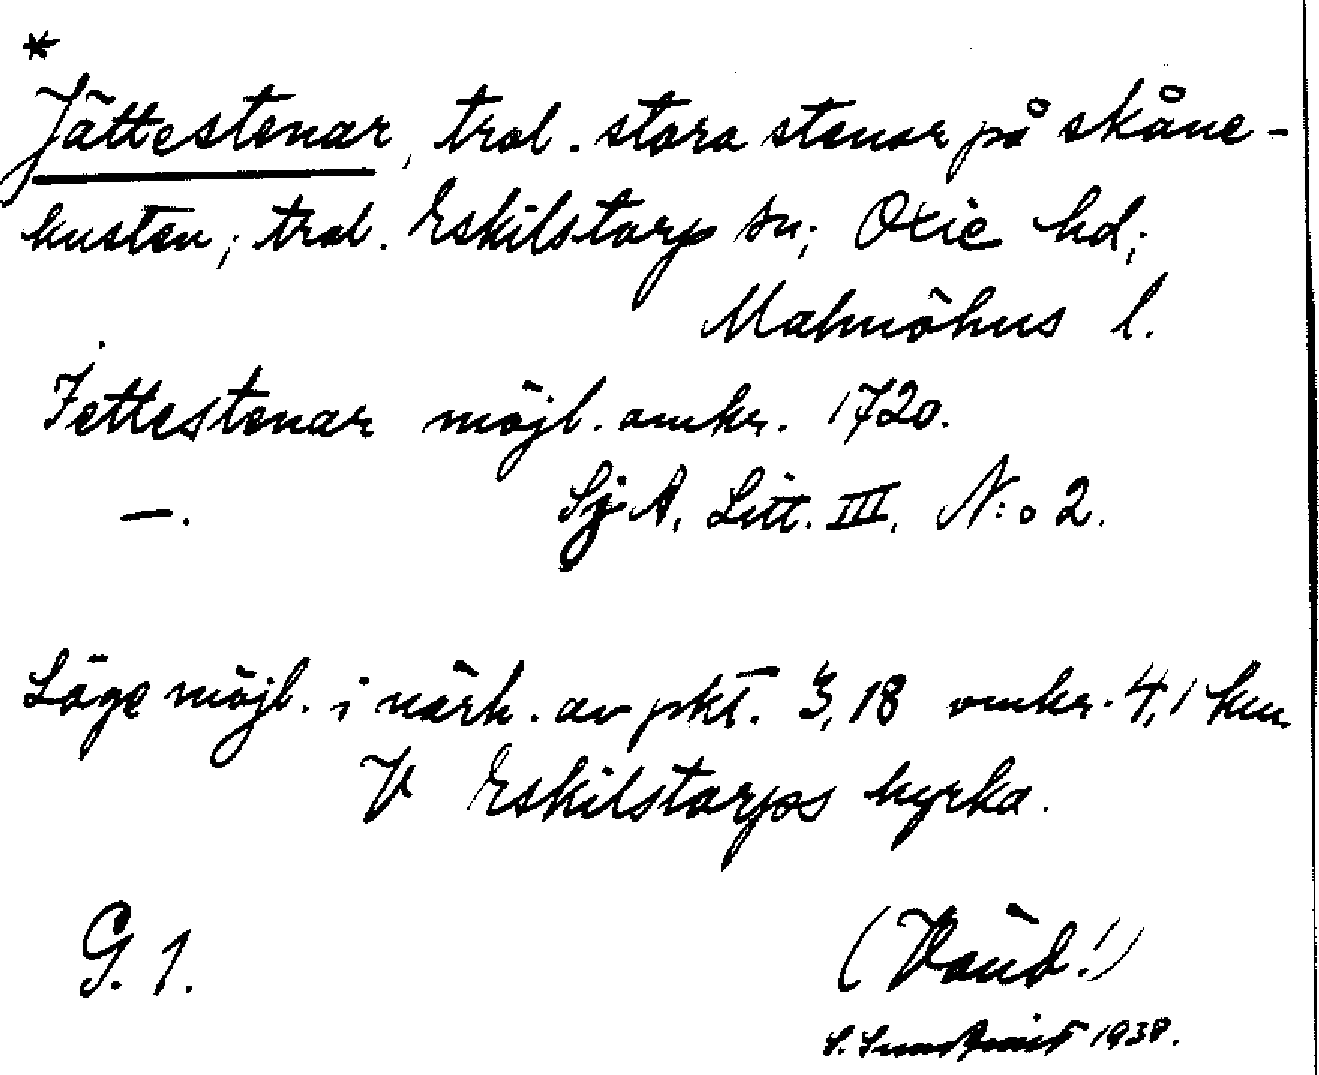 *
Jättestenar, trol. stora stenar på skåne-
kusten; trol. Eskilstorp sn; Oxie hd;
Malmöhus l.
Jettestenar möjl. omkr. 1720.
—. SjA. Litt. III. N:o 2.
Läge möjl. i närh. av pkt. 3,18 omkr. 4,1 km
V Eskilstorps kyrka.
G. 1. (Vänd!)
S. Sundqvist 1938.